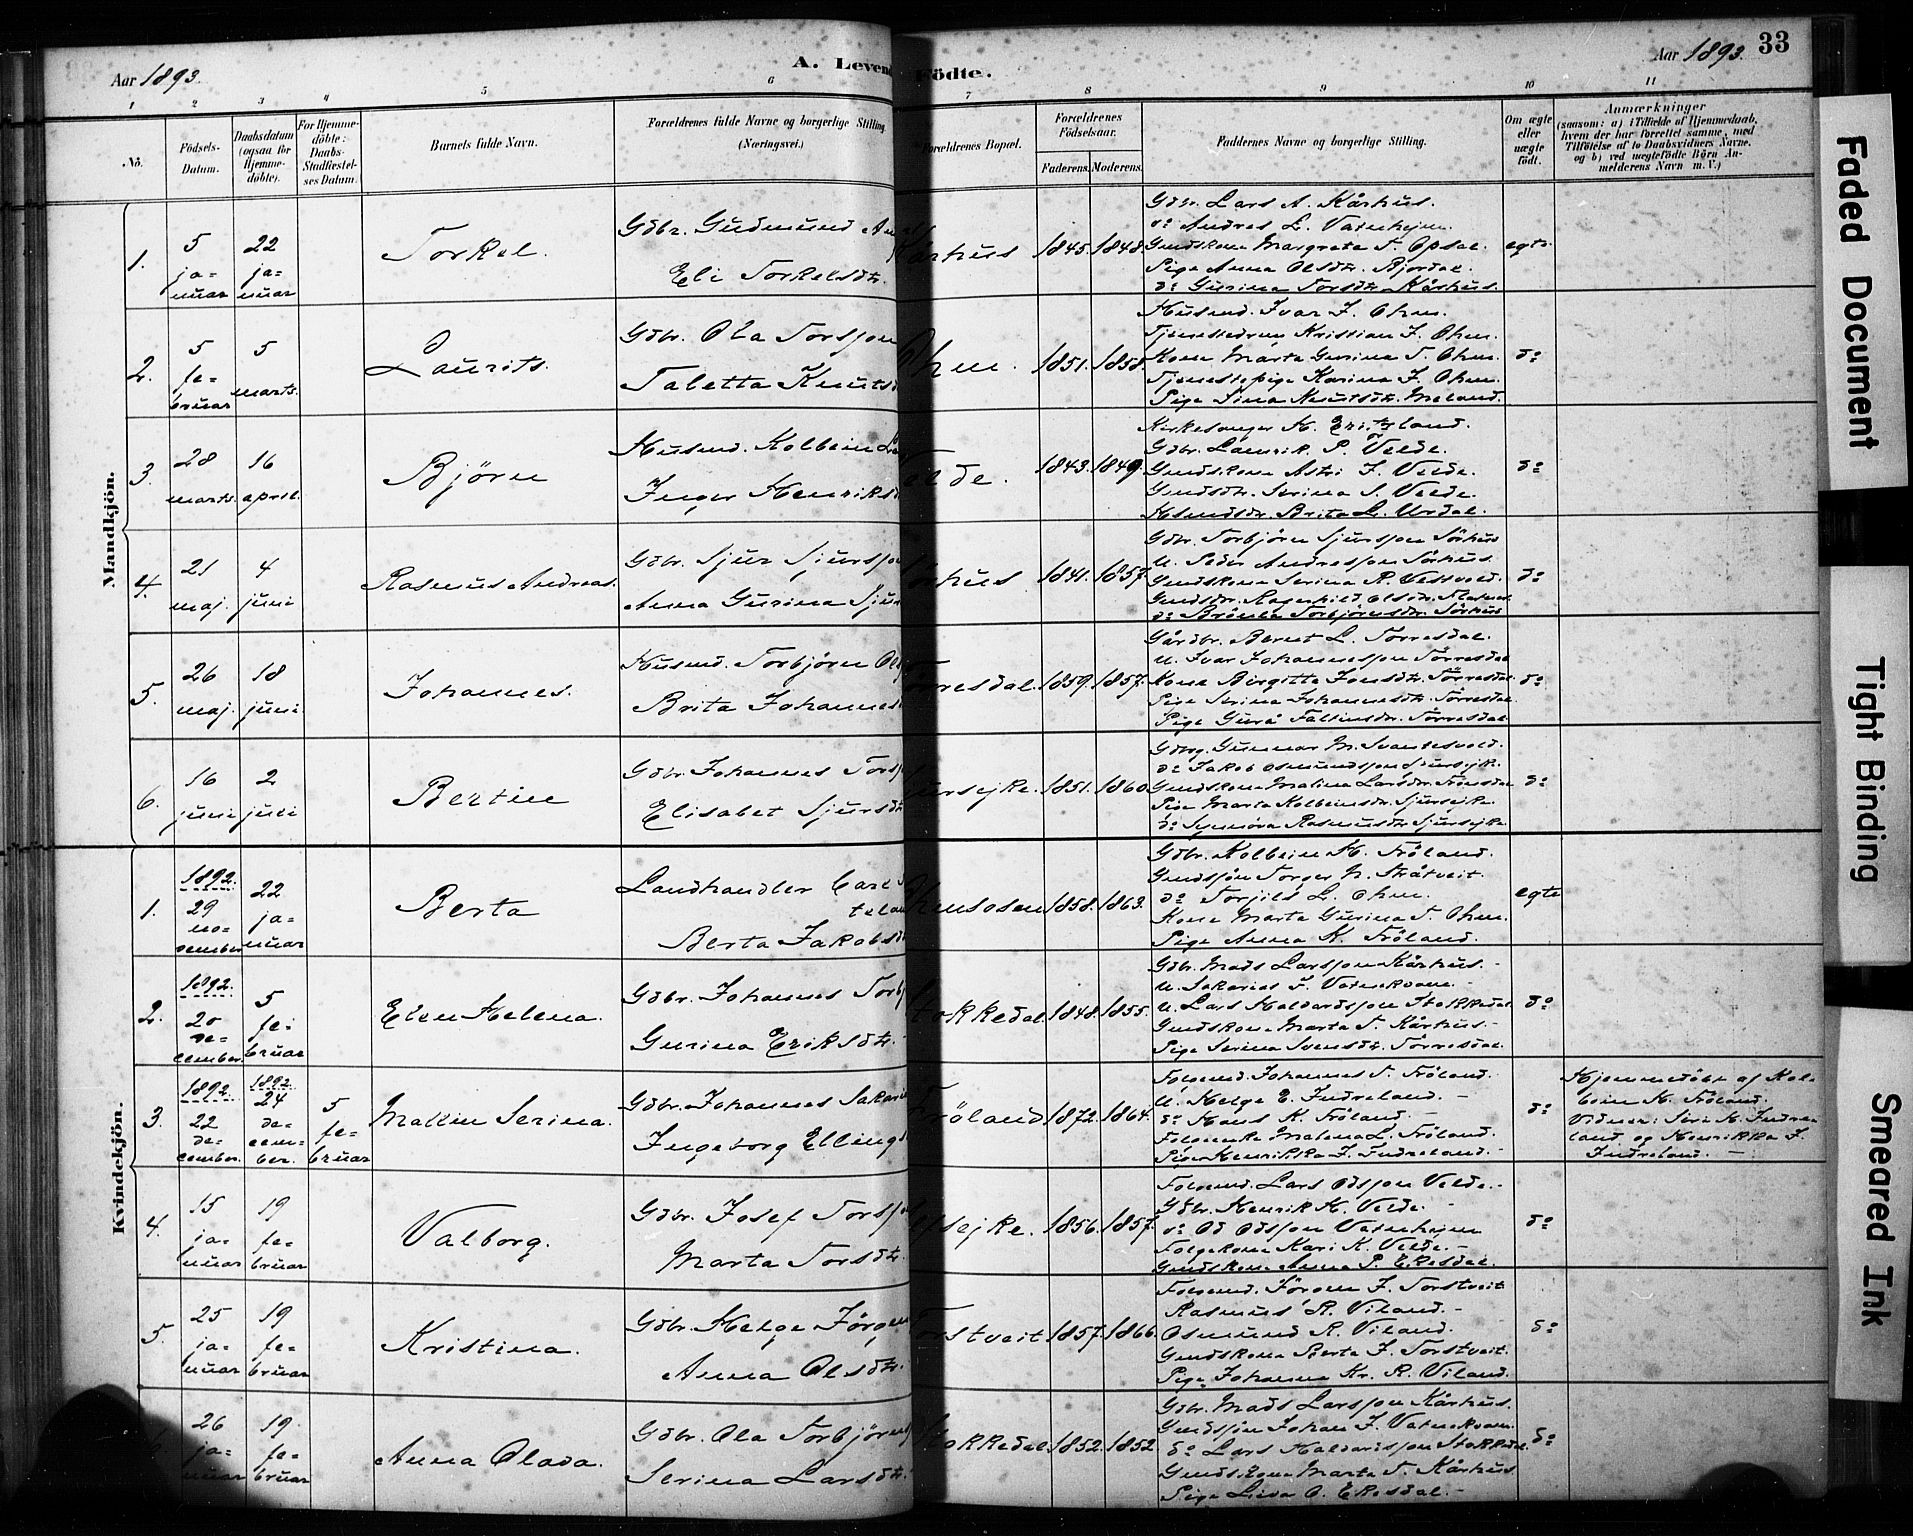 Aar 1893.
A. Levend
Födte.
Aar 1893.
33
1 2 3 4 5 6 7 8 9 10 11
No.
Födsels-
Datum.
Daabsdatum
(ogsaa for
Hjemme-
döbte).
For Hjemme-
döbte:
Daabs-
Stadfæstel-
ses Datum.
Barnets fulde Navn.
Forældrenes fulde Navne og borgerlige Stilling
(Næringsvei.)
Forældrenes Bopæl.
Forældrenes
Födselsaar.
Faderens. Moderens.
Faddernes Navne og borgerlige Stilling.
Om ægte
eller
uægte
födt.
Anmærkninger
(saasom: a) i Tilfælde af Hjemmedaab,
hvem der har forrettet samme, med
Tilföielse af to Daabsvidners Navne.
og b) ved uægtefödte Börn An-
melderens Navn m. V.)
Mandkjön.
1.
5
ja-
nuar
22
ja-
nuar
Torkel.
Gdbr. Gudmund
Eli Torkelsdtr.
1845. 1848.
Gdbr. Lars A. Kårhus.
do Andres L. Vatnehjem.
Gmdskone Margreta T. Opsal.
Pige Anna Olsdtr. Bjordal.
do Gurina Torsdtr. Kårhus.
egte
2.
5
fe-
bruar
5
marts.
Laurits.
Gdbr. Ola Torsson
Taletta Knuts
1851. 1858.
Husmd. Ivar J. Ohm.
Tjenestedreng Kristian J. Ohm.
Kone Marta Gurina T. Ohm.
Tjenestepige Karina J. Ohm.
Pige Sina Knutsdtr. Meland.
do
3.
28
marts.
16
april.
Bjørn
Husmd. Kolbein
Inger Henriks
1843. 1849.
Kirkesanger H.
Gdbr. Lamrik P. Velde.
Gmdskone Astri J. Velde.
Gmdsdtr. Serina S. Velde.
Brita L. Urdal.
do
4.
21
maj.
4
juni
Rasmus Andreas.
Gdbr. Sjur Sjursson
Anna Gurina Sjur
1841. 1857.
Gdbr. Torbjørn Sjursson Sørhus
U. Peder Andresson Sørhus.
Gmdskone Serina R. Vestvold.
Gmdsdtr. Ragnhild Olsdtr.
do Torbjørnsdtr. Sørhus
do
5.
26
maj.
18
juni.
Johannes.
Husmd. Torbjørn
Brita Johannes
1859. 1857.
Gårdbr. Bernt L. Tørresdal.
U. Ivar Johannesson Tørresdal
Kone Birgitte Jonsdtr. Tørresdal
Pige Serina Johannesdtr. Tørresdal.
Pige Guro Tørresdal
do
6.
16
juni
2
juli
Bertin
Gdbr. Johannes
Elisabet Sjursdtr
1851. 1860.
Gunnar M. Svantesvold.
do Jakob Osmundsson Sjursejke.
Gmdskone Malina Larsdtr.
Pige Marta Kolbeinsdtr. Sjursejke.
do Synnøva Rasmusdtr. Sjursejke
do
Kvindekjön.
1.
1892.
29
no-
vember
22
ja-
nuar
Berta
Landhandler Carl
Berta Jakobsd
1858. 1863.
Gdbr. Kolbein H. Frøland.
Gmdssøn Torger N. Skåtveit.
do Torjils L. Ohm.
Kone Marta Gurina T. Ohm.
Pige Anna K. Frøland.
egte
2.
1892.
20
de-
cember.
5
fe-
bruar
Elen Helena.
Gdbr. Johannes
Gurina Eriksdtr.
1848. 1855.
Gdbr. Mads Larsson Kårhus. -
U. Sakarias F. Vatnekvam. -
U. Lars Haldordsson Stokkedal
Gmdskone Marta T. Kårhus. -
Pige Serina Svensdtr. Tørresdal.
do
3.
1892.
22
de-
cember.
1892.
24
de-
cem-
ber.
5
fe-
bruar
Mallin Serina.
Gdbr. Johannes Sakari
Ingeborg Ellings
Frøland
1872. 1864.
Johannes T. Frøland.
U. Helge E. Indreland. -
do Hans K. Frøland. -
Malena L. Frøland.
Pige Henrikka J. Indreland. -
do
Hjemmedøbt af Kol-
bein H. Frøland.
Vidner: H. Indre-
land, og Henrikka J.
Indreland. -
4.
15
ja-
nuar
19
fe-
bruar
Valborg.
Gdbr. Josef Torsson
Marta Torsdtr.
1856. 1857.
Lars Odsson Velde. -
Gdbr. Henrik H. Velde. -
do Od Odsson Vatnehjem
Kari K. Velde. -
Gmdskone Anna P. Ekesdal.
do
5.
25
ja-
nuar
19
fe-
bruar
Kristina.
Gdbr. Helge Jørgen
Anna Olsdtr.
1857. 1866.
Jørgen J. Torstveit
Rasmus R. Viland. -
Osmund R. Viland. -
Gmdskone Berta J. Torstveit.
Pige Johanna Kr. R. Viland.
do
26
ja-
nuar
19.
fe-
bruar
Anna Olava.
Gdbr. Ola Torbjørn
Serina Larsdtr.
1852. 1852
Gdbr. Mads Larsson Kårhus.
Gmdssøn Johan F. Vatnekvam.
do Lars Haldordsson Stokkedal
Gmdskone Marta T. Kårhus.
Pige Lisa O. Ekesdal. -
do
Faded Document
Tight Binding
Smeared Ink